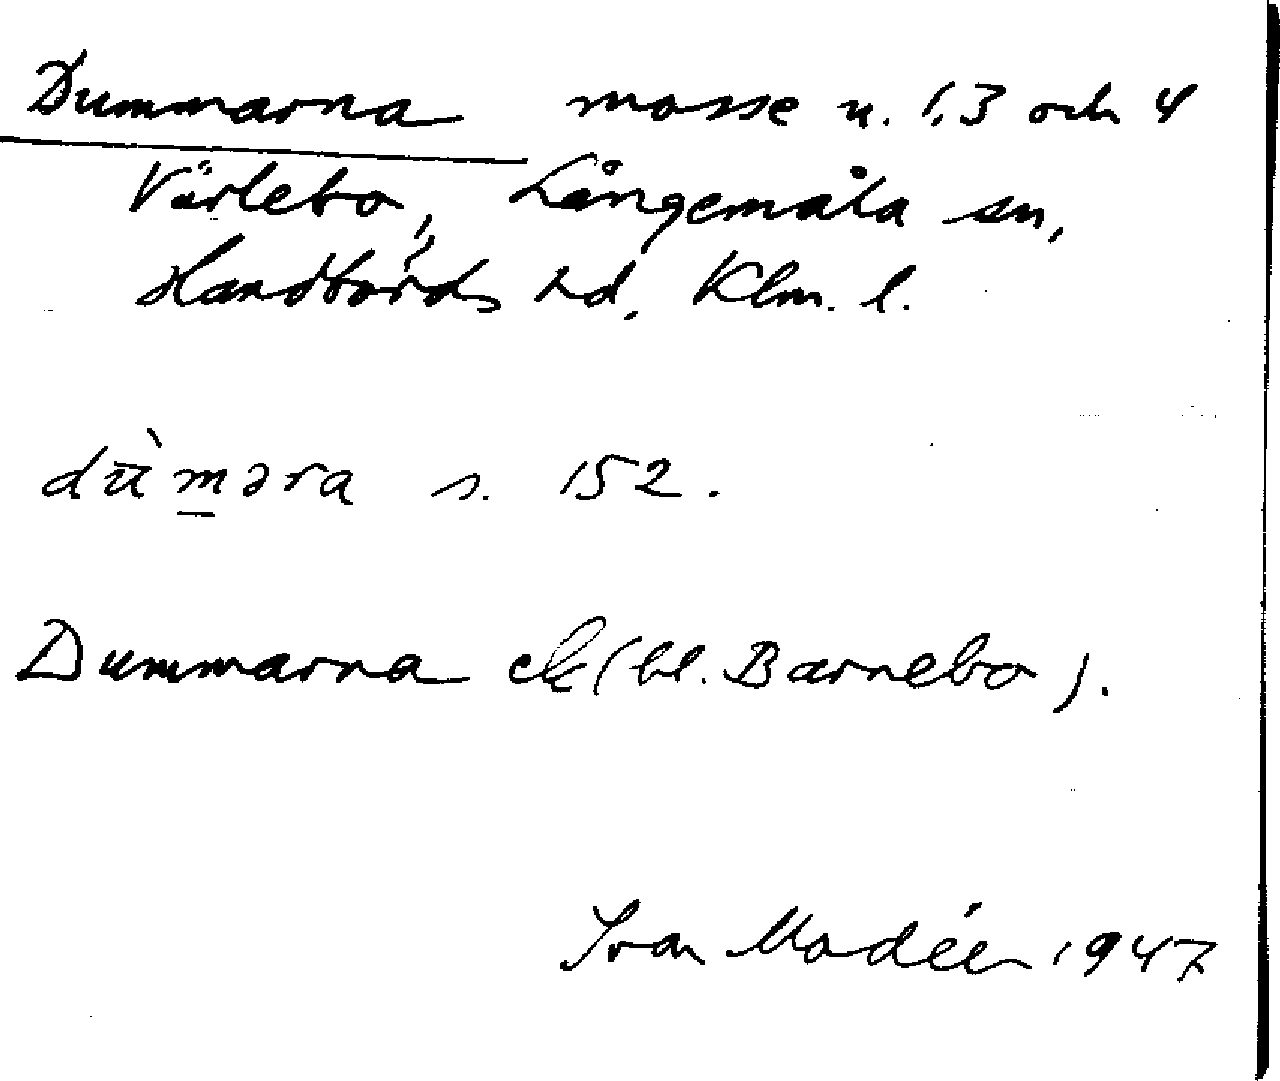 Dummarna mosse u. 1,3 och 4
Värlebo, Långemåla sn,
Handbörds hd, Klm. l.
dùməra s. 152.
Dummarna ek (bl. Barnebo).
Ivar Modéer 1947